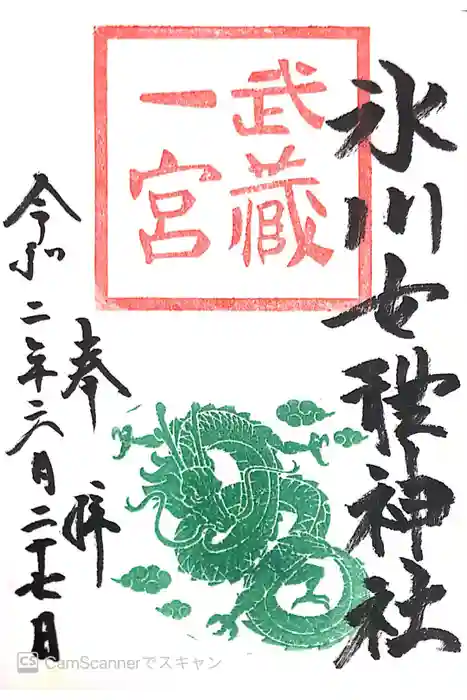 氷川女體神社
武藏
一宮
奉拝
令和二年六月二十七日
CS CamScannerでスキャン